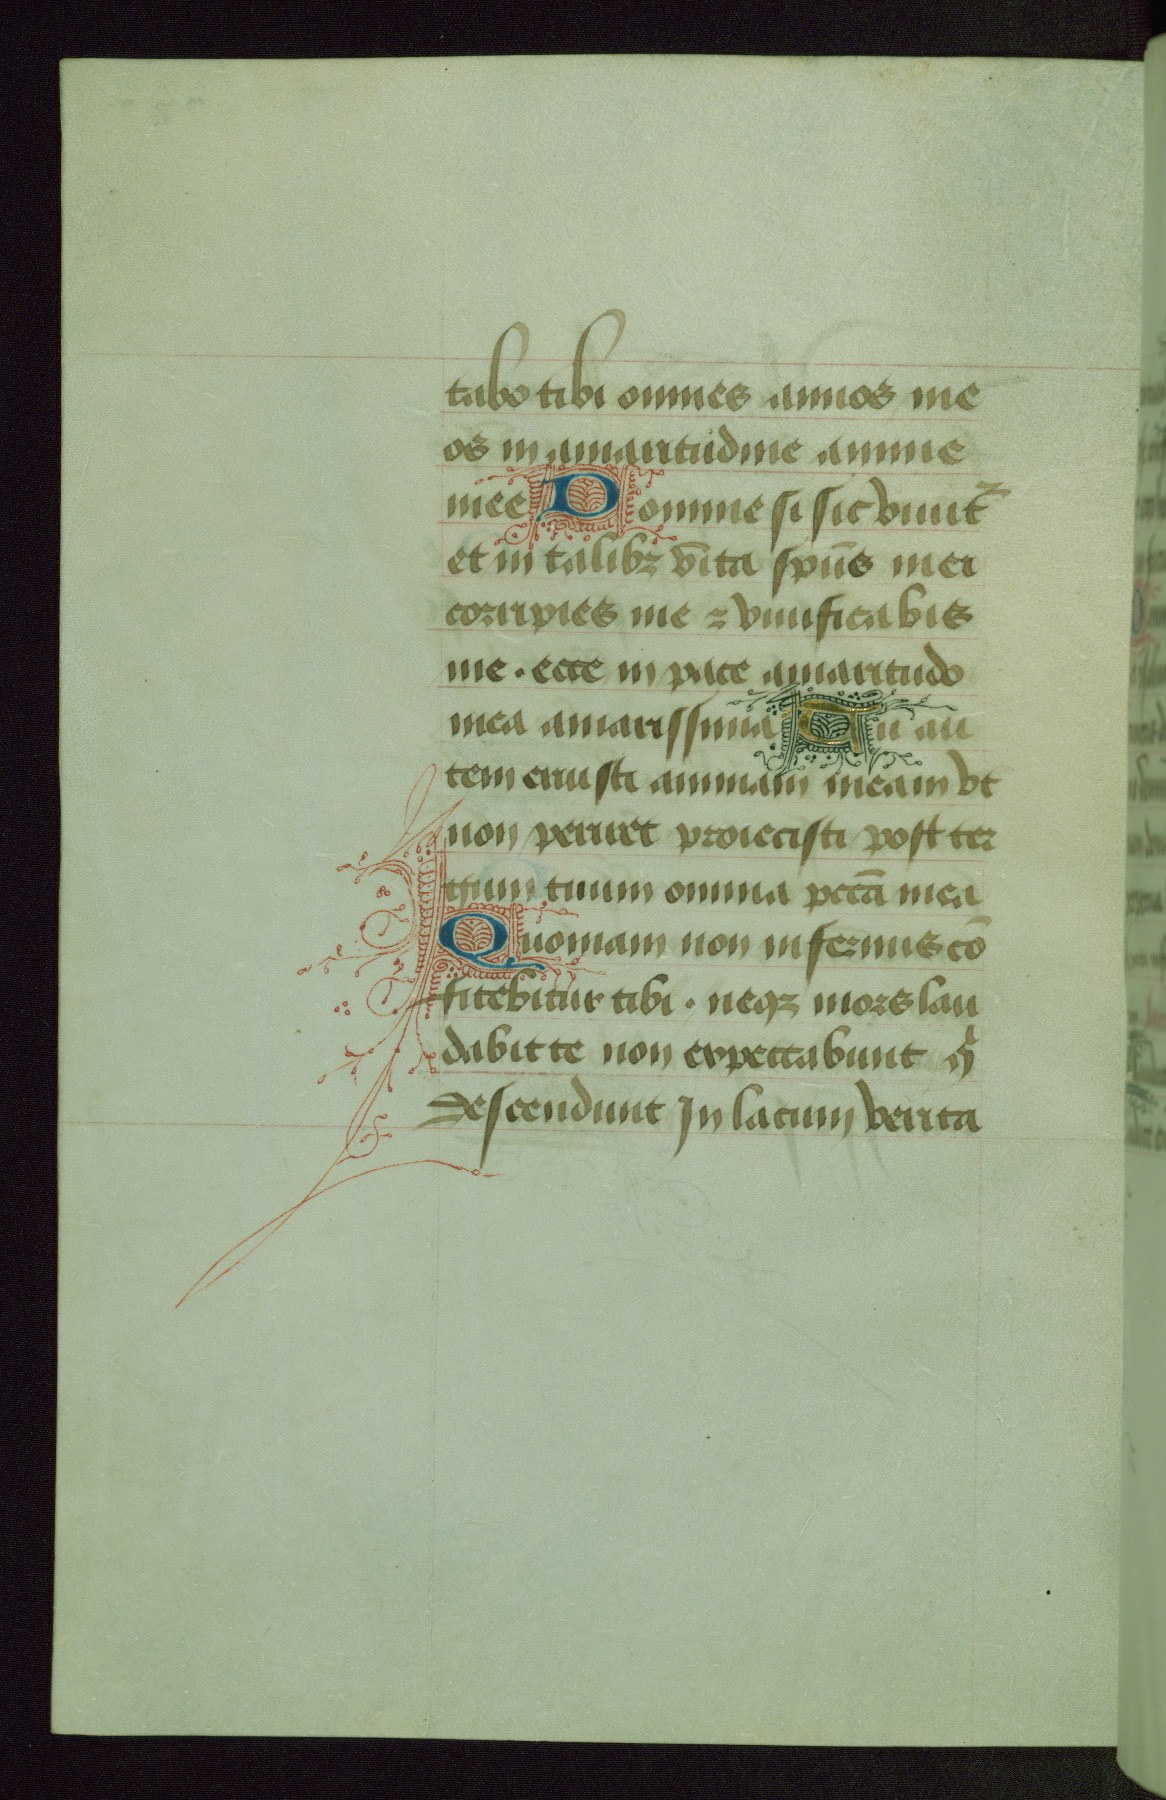 tabo tibi omnes annos me
os in amaritudine anime
mee Domine si sic viuit᷑
et in talibꝫ vi̅ta spu̅s mei
corripies me ⁊ viuificabis
me · ecce in pace amaritudo
mea amarissima Tu au
tem eruisti animam meam vt
non periret proiecisti post ter
gum tuum omnia pcca̅ mea
Quoniam non infernus co̅
fitebitur tibi · neqꝫ mors lau
dabit te non expectabunt qͥ
descendunt In lacum verita